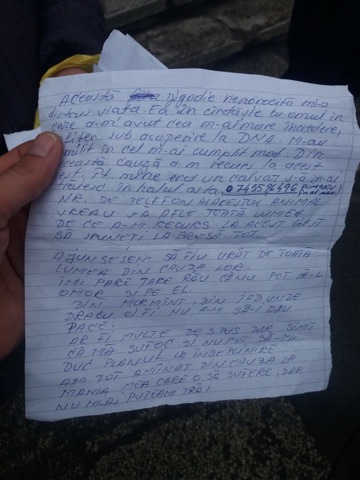 Această nigodie nenorocită mi-a
distrus viața. Ea în cîrdășie cu omul în
care a-m avut cea m-ai mare încredere,
ofițer sub acoperire la DNA. M-au
umilit în cel m-ai cumplit mod. Din
această cauză a-m recurs la acest
Pt. mine era un calvar s-o m-ai
trăiesc în halul ăsta. 0745586496
NR. DE TELEFON ALACESTUI ANIMAL
VREAU SA AFLE TOATĂ LUMEA
DE CE A-M RECURS LA ACEST
SĂ SPUNEȚI LA PRESĂ TOT.
AJUNSESEM SĂ FIU URÂT DE TOATĂ
LUMEA DIN CAUZA LOR.
IMI PARE TARE RĂU CĂ NU POT SĂ-L
OMOR ȘI PE EL
DIN MORMÎNT, DIN IAD, UNDE
DRACU OI FI NU AM SĂ-I DAU
PACE!
AR FI MULTE DE SPUS DAR SIMT
CĂ MĂ SUFOC SI NU POT SĂ-MI
DUC PLANUL LA INDEPLINIRE
A-M TOT AMÎNAT DIN CAUZA LA
MAMA MEA CARE O SĂ SUFERE, DAR
NU M-AI PUTEAM TRĂI